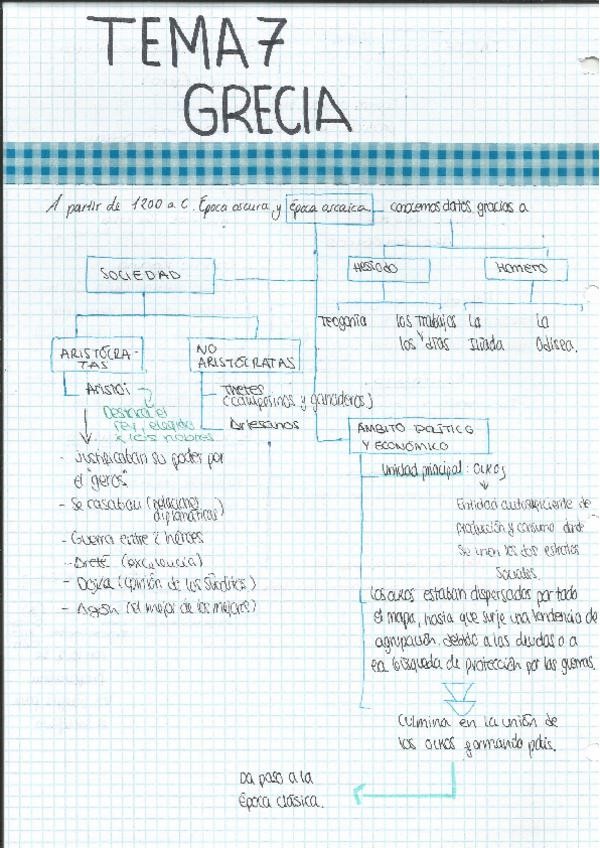 TEMA 7
GRECIA
A partir de 1200 a.C. Época oscura y época arcaica conocemos datos gracias a
SOCIEDAD
Hesíodo
Homero
Teogonía
los trabajos y
los días
La
Ilíada
La
Odisea.
ARISTÓCRA-
TAS
NO
ARISTÓCRATAS
Aristoi
Destaca el
rey, elegido
x los nobres
- Justificaban su poder por
el "geros"
- Se casaban (relaciones
diplomáticas)
- Guerra entre 2 héroes
- Areté (excelencia)
- Doxa (opinión de los súbditos)
- Agón (el mejor de los mejores)
- Thetes
(campesinos y ganaderos)
- Artesanos
ÁMBITO POLÍTICO
Y ECONÓMICO
Unidad principal: oikos
Entidad autosuficiente de
producción y consumo donde
se unen los dos estratos
sociales.
Los oikos estaban dispersados por todo
el mapa, hasta que surje una tendencia de
agrupación. debido a las deudas o a
la búsqueda de protección por las guerras.
Culmina en la unión de
los oikos formando polis.
Da paso a la
Época clásica.